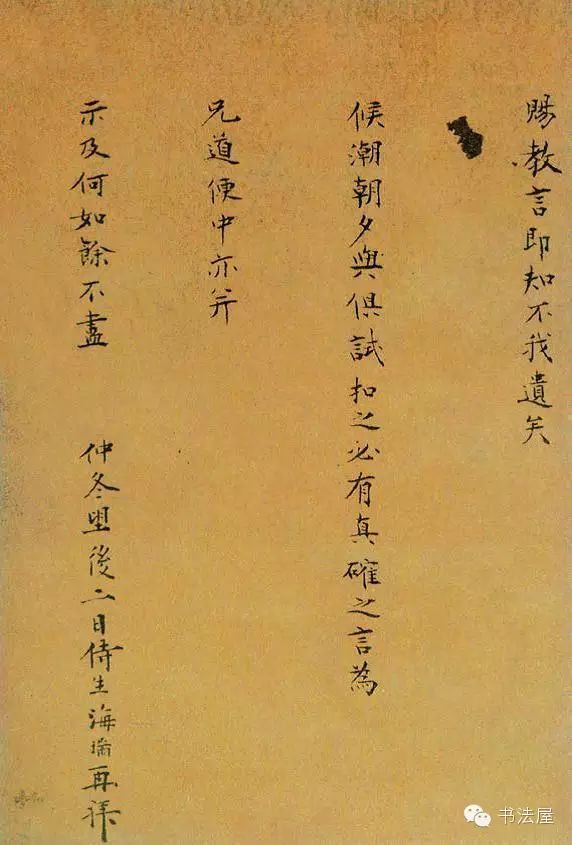 賜教言即知不我遺矣
候潮朝夕與俱試扣之必有真確之言為
兄道便中亦并
示及何如餘不盡
仲冬朢後二日侍生海瑞再拜
书法屋